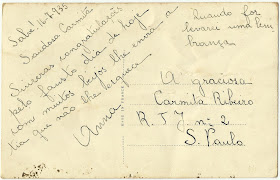 Sabb. 16-7-933
Saudosa Carmita
Sinceras congratulações
pelo fausto dia de hoje
com muitos beijos lhe envia a
tia que não lhe esquece
Anna
Quando for
levarei uma lem
brança
A graciosa
Carmita Ribeiro
R. J. J. nº 2
S. Paulo